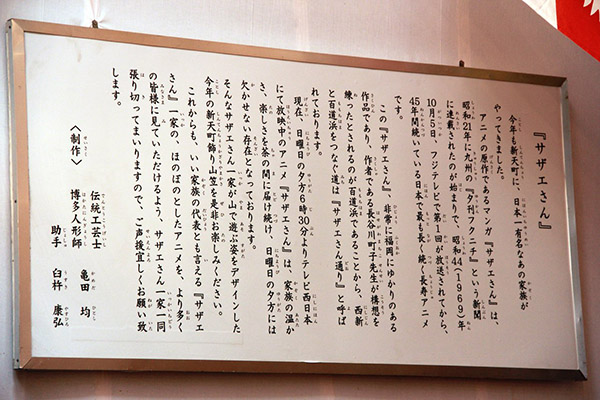 『サザエさん』
今年も新天町に、日本一有名なあの家族が
やってきました。
アニメの原作であるマンガ『サザエさん』は、
昭和21年に九州の『夕刊フクニチ』という新聞
に連載されたのが始まりで、昭和44（1969）年
10月5日、フジテレビで第1回が放送されてから、
45年間続いている日本で最も長く続く長寿アニメ
です。
この『サザエさん』、非常に福岡にゆかりのある
作品であり、作者である長谷川町子先生が構想を
練ったとされるのが百道浜であることから、西新
と百道浜をつなぐ道は『サザエさん通り』と呼ば
れております。
現在、日曜日の夕方6時30分よりテレビ西日本
にて放映中のアニメ『サザエさん』は、家族の温か
さ、楽しさを茶の間に届け続け、日曜日の夕方には
欠かせない存在となっております。
そんなサザエさん一家が山で遊ぶ姿をデザインした
今年の新天町飾り山笠を是非お楽しみください。
これからも、いい家族の代表とも言える『サザエ
さん』一家の、ほのぼのとしたアニメを、より多く
の皆様に見ていただけるよう、サザエさん一家一同
張り切ってまいりますので、ご声援宜しくお願い致
します。
〈制作〉
伝統工芸士
博多人形師 亀田 均
助手 臼杵 康弘